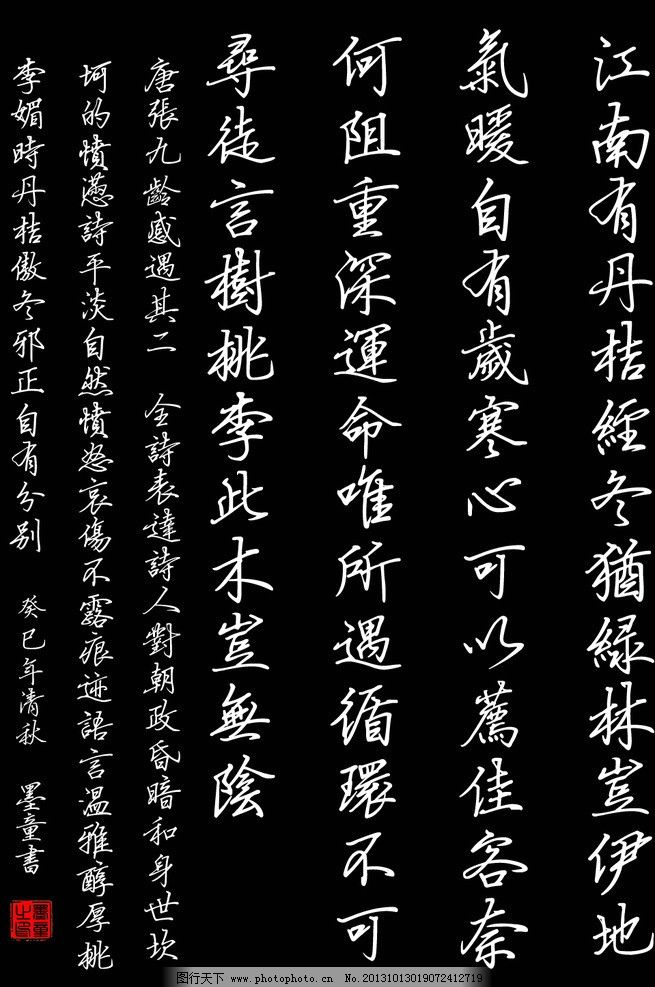 江南有丹桔經冬猶緑林豈伊地
氣暖自有歲寒心可以薦佳客奈
何阻重深運命唯所遇循環不可
尋徒言樹桃李此木豈無陰
唐張九齡感遇其二 全詩表達詩人對朝政昏暗和身世坎
坷的憤懣詩平淡自然憤怒哀傷不露痕迹語言温雅醇厚桃
李媚時丹桔傲冬邪正自有分别 癸巳年清秋 墨童書
图行天下 www.photophoto.cn No.20131013019072412719